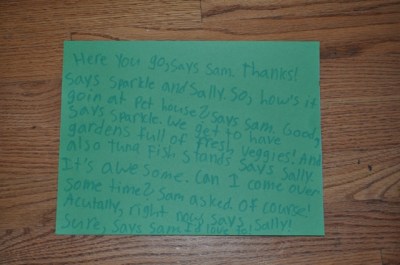 Here you go, says Sam. Thanks!
says Sparkle and Sally. So, how's it
goin at Pet house? says Sam. Good,
says Sparkle. We get to have
gardens full of fresh veggies! And
also tuna fish stands says Sally.
It's awesome. Can I come over
some time? Sam asked. Of course!
Acutally, right now, says Sally!
Sure, says Sam. I'd love to!